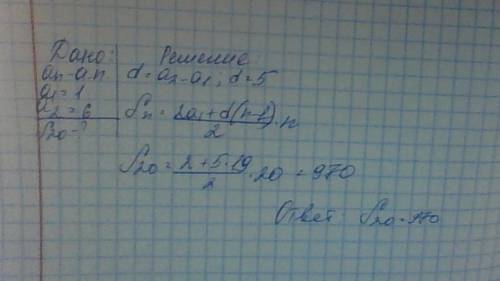 Дано:
aₙ - а.п
a₁ = 1
a₂ = 6
S₂₀ - ?
Решение
d = a₂ - a₁; d = 5
Sₙ = (2a₁ + d(n-1))/2 · n
S₂₀ = (2 + 5 · 19)/2 · 20 = 970
Ответ: S₂₀ = 970